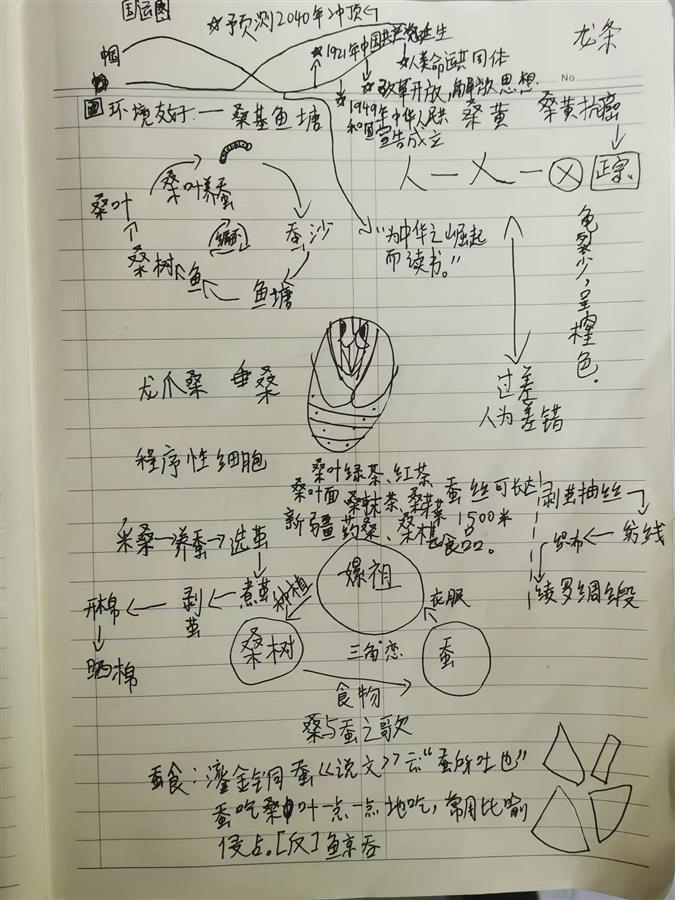 国运图
☆预测2040年冲顶
龙条
中国
☆1921年中国共产党诞生
☆人类命运共同体
☆改革开放,解放思想.
No.
环境友好:一桑基鱼塘
☆1949年中华人民共
和国宣告成立
桑黄 桑黄抗癌
正宗
桑叶养蚕
桑叶
循环
蚕沙
桑树
鱼
鱼塘
"为中华之崛起
而读书。"
龟裂少,呈橙色.
过差
人为差错
龙爪桑 垂桑
程序性细胞
桑叶绿茶、红茶
桑叶面 桑抹茶、桑芽菜
新疆药桑、桑椹
食品。
蚕丝可长达
1500米
剥茧抽丝
纺线
织布
绫罗绸缎
采桑→养蚕→选茧
煮茧
剥茧
开棉
晒棉
种植
嫘祖
衣服
桑树
三角恋
蚕
食物
桑与蚕之歌
蚕食:鎏金铜蚕《说文》云"蚕所吐也"
蚕吃桑叶一点一点地吃,常用比喻
侵占。[反]鲸吞